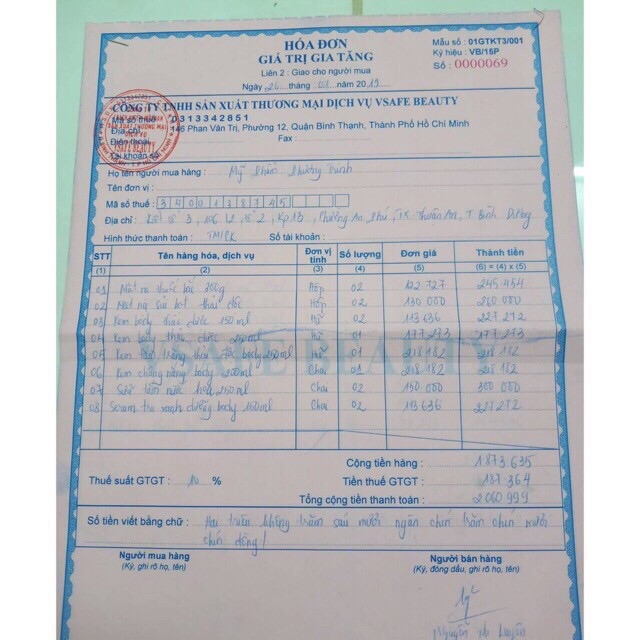 HÓA ĐƠN
GIÁ TRỊ GIA TĂNG
Liên 2 : Giao cho người mua
Mẫu số : 01GTKT3/001
Ký hiệu : VB/15P
Số : 0000069
Ngày 26 tháng năm 2019
CÔNG TY TNHH SẢN XUẤT THƯƠNG MẠI DỊCH VỤ VSAFE BEAUTY
Mã số thuế 0313342851
Địa chỉ 146 Phan Văn Trị, Phường 12, Quận Bình Thạnh, Thành Phố Hồ Chí Minh
Điện thoại Fax :
Tài khoản số
Họ tên người mua hàng : Mỹ Phẩm Phương Trinh
Tên đơn vị :
Mã số thuế : 3400138745
Địa chỉ : Phường An Phú, TX Thuận An, T Bình Dương
Hình thức thanh toán : TM/CK Số tài khoản :
STT Tên hàng hóa, dịch vụ Đơn vị tính Số lượng Đơn giá Thành tiền
(1) (2) (3) (4) (5) (6) = (4) x (5)
01 Mặt nạ thuốc bắc 300g Hộp 02 122 727 245 454
02 Mặt nạ sủi bọt thải độc Hộp 02 130 000 260 000
03 Kem body thảo dược 150ml Hũ 02 113 636 227 272
04 Kem body thảo dược 250ml Hũ 01 177 273 177 273
05 Kem tắm trắng thải độc body 250ml Hũ 01 218 182 218 182
06 Kem chống nắng body 250ml Chai 01 218 182 218 182
07 Sữa tắm nước hoa 250ml Chai 02 150 000 300 000
08 Serum tra xanh dưỡng body 150ml Chai 02 113 636 227 272
VSAFE BEAUTY
Cộng tiền hàng : 1 873 635
Thuế suất GTGT : 10 % Tiền thuế GTGT : 187 364
Tổng cộng tiền thanh toán : 2 060 999
Số tiền viết bằng chữ : Hai triệu không trăm sáu mươi ngàn chín trăm chín mươi
chín đồng!
Người mua hàng Người bán hàng
(Ký, ghi rõ họ, tên) (Ký, đóng dấu, ghi rõ họ, tên)
Nguyễn Thị Luyến